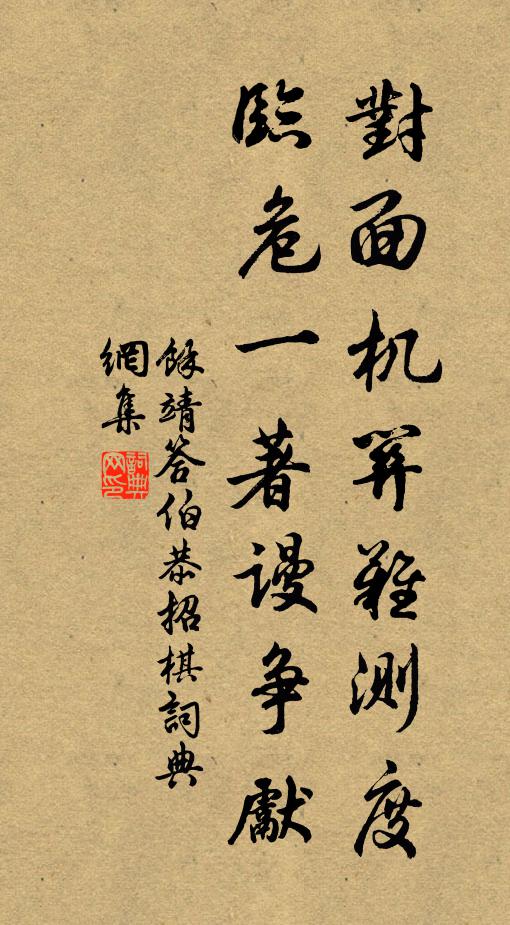 對面机関難測度
臨危一著謾争獻
餘靖答伯恭招棋詞典
網集
詞典
网印